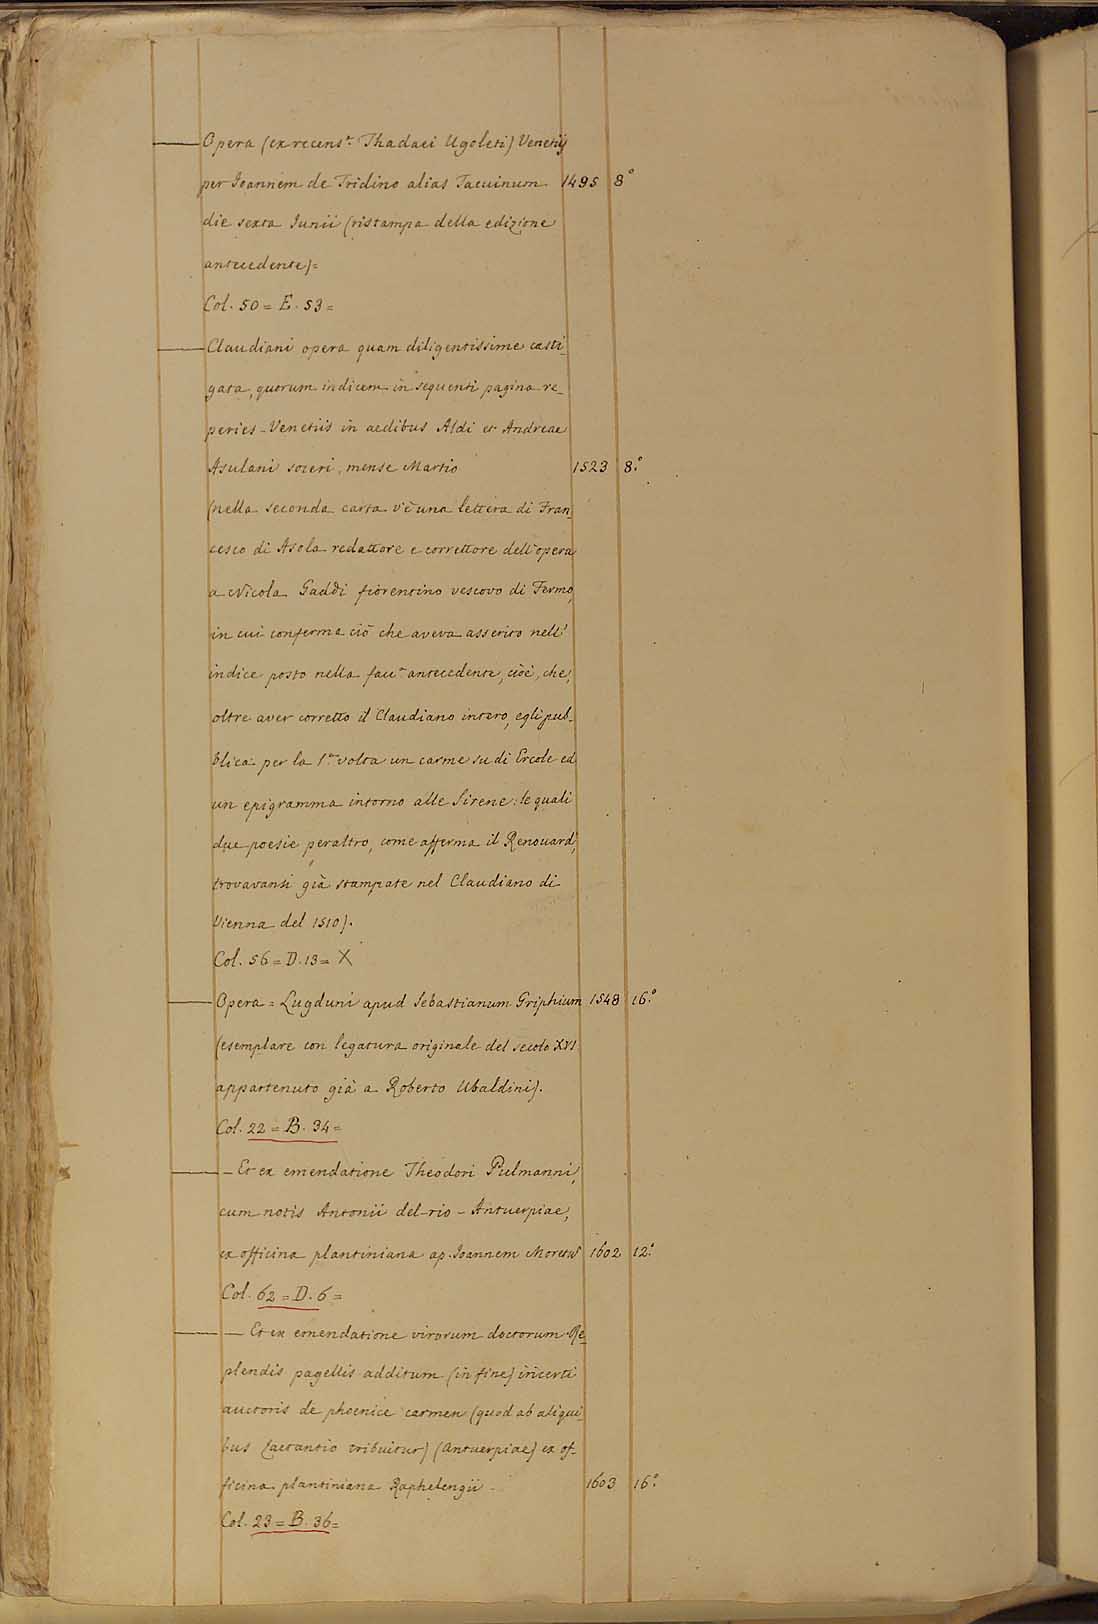 Opera (ex recens.e Thadaei Ugoleti) Venetijs
per Ioannem de Tridino alias Tacuinum 1495 8°
die sexta Iunii (ristampa della edizione
antecedente)=
Col. 50 = E. 53 =
Claudiani opera quam diligentissime casti_
gata, quorum indicem in sequenti pagina re_
peries - Venetiis in aedibus Aldi et Andreae
Asulani soceri, mense Martio 1523 8.°
(nella seconda carta v'è una lettera di Fran_
cesco di Asola redattore e correttore dell'opera
a Nicola Gaddi fiorentino vescovo di Fermo,
in cui conferma ciò che aveva asserito nell'
indice posto nella facc.a antecedente, cioè, che,
oltre aver corretto il Claudiano intero, egli pub_
blica per la 1.a volta un carme su di Ercole ed
un epigramma intorno alle Sirene: le quali
due poesie peraltro, come afferma il Renouard,
trovavansi già stampate nel Claudiano di
Vienna del 1510).
Col. 56 = D. 13 = X
Opera = Lugduni apud Sebastianum Griphium 1548 16.°
(esemplare con legatura originale del secolo XVI
appartenuto già a Roberto Ubaldini).
Col. 22 = B. 34 =
— Et ex emendatione Theodori Pulmanni,
cum notis Antonii del-rio - Antuerpiae,
ex officina plantiniana ap. Ioannem Moretū 1602 12.°
Col. 62 = D. 6 =
— Et ex emendatione virorum doctorum. Re_
plendis pagellis additum (in fine) incerti
auctoris de phoenice carmen (quod ab aliqui_
bus Lactantio tribuitur) (Antuerpiae) ex of_
ficina plantiniana Raphelengii 1603 16.°
Col. 23 = B. 36 =